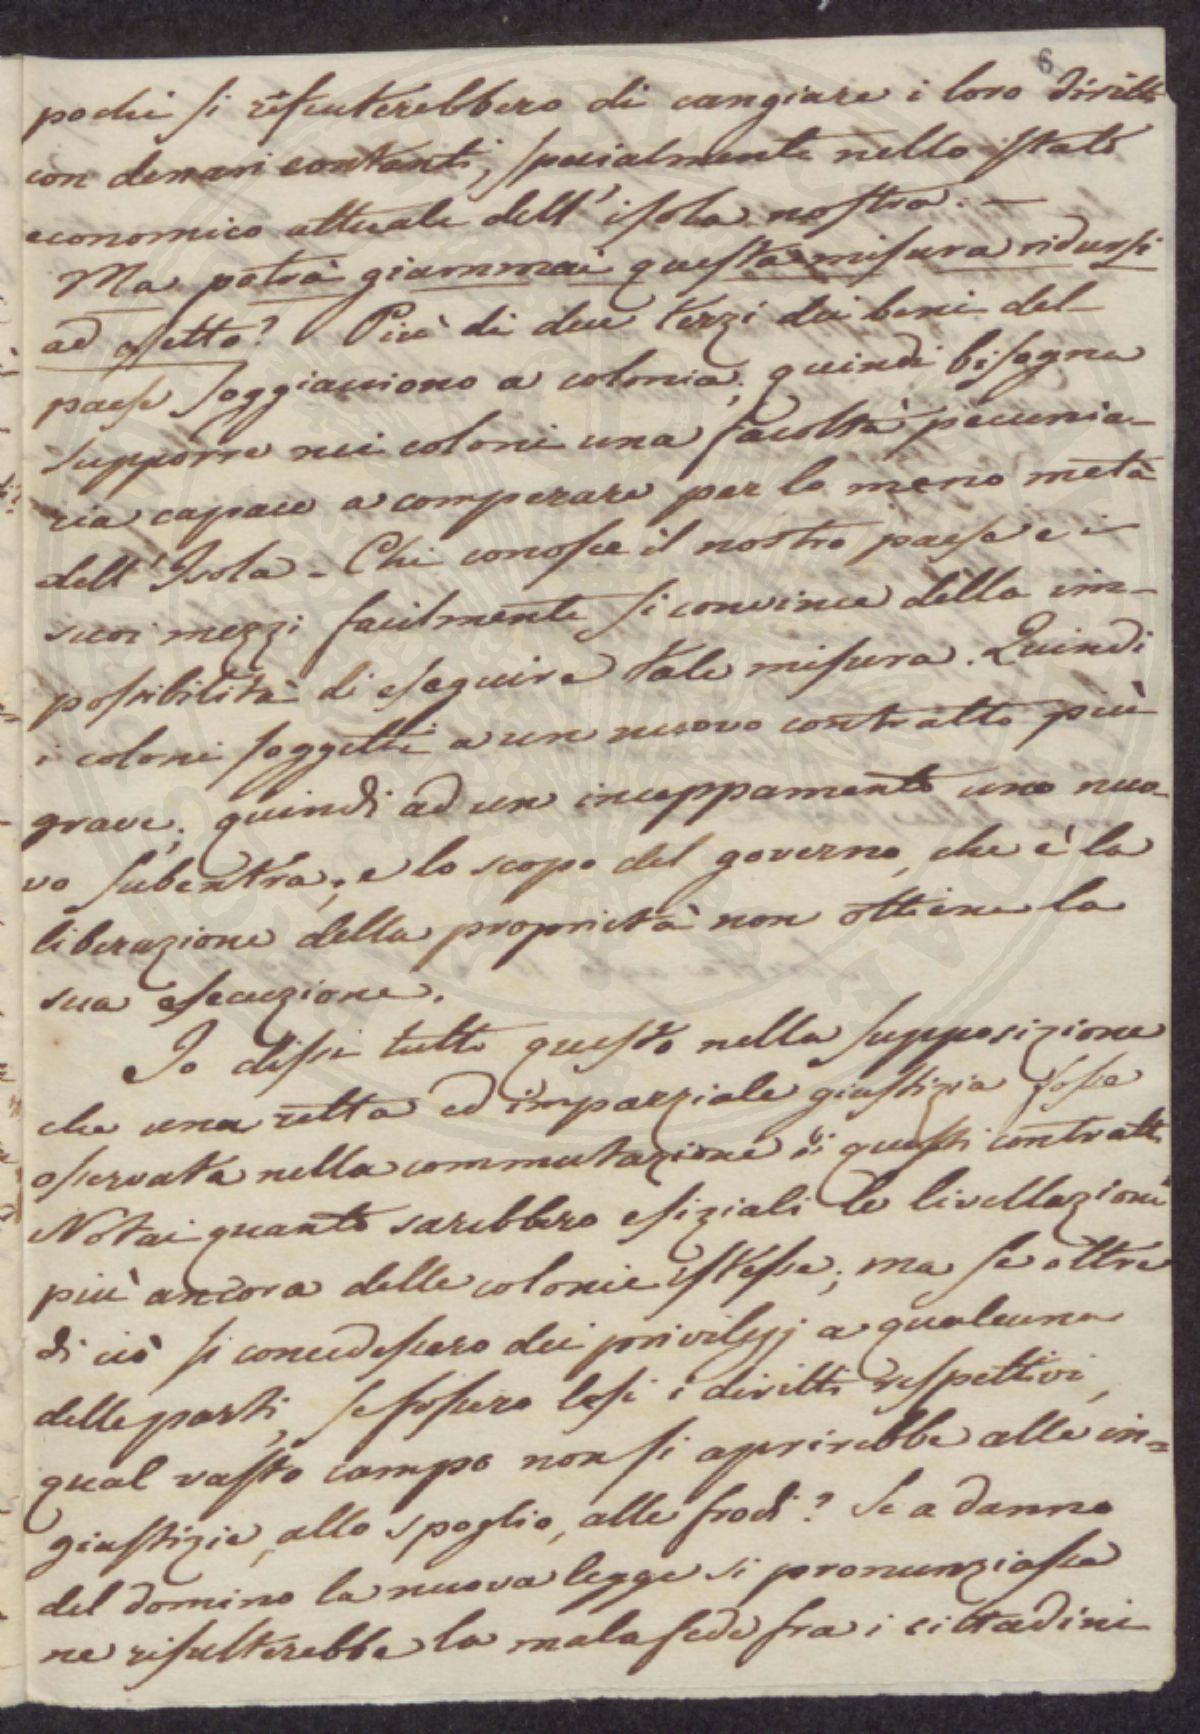 6
pochi si rifiuterebbero di cangiare i loro diritti
con denari contanti, specialmente nello stato
economico attuale dell'isola nostra. —
Ma potrà giammai questa misura ridursi
ad effetto? Più di due terzi dei beni del
paese soggiacciono a colonia; quindi bisogna
supporre nei coloni una facoltà pecunia-
ria capace a comperare per lo meno metà
dell'Isola – Chi conosce il nostro paese e i
suoi mezzi facilmente si convince della im-
possibilità di eseguire tale misura. Quindi
i coloni soggetti a un nuovo contratto più
grave; quindi ad un inceppamento uno nuo-
vo subentra; e lo scopo del governo, che è la
liberazione della proprietà non ottiene la
sua esecuzione.
Io dissi tutto questo nella supposizione
che una retta ed imparziale giustizia fosse
osservata nella commutazione di questi contratti
Notai quanto sarebbero esiziali le livellazioni
più ancora delle colonie istesse; ma se oltre
di ciò si concedessero dei privilegj a qualcuna
delle parti, se fossero lesi i diritti respettivi,
qual vasto campo non si aprirebbe alle in=
giustizie, allo spoglio, alle frodi? Se a danno
del domino la nuova legge si pronunziasse
ne risulterebbe la mala fede fra i cittadini